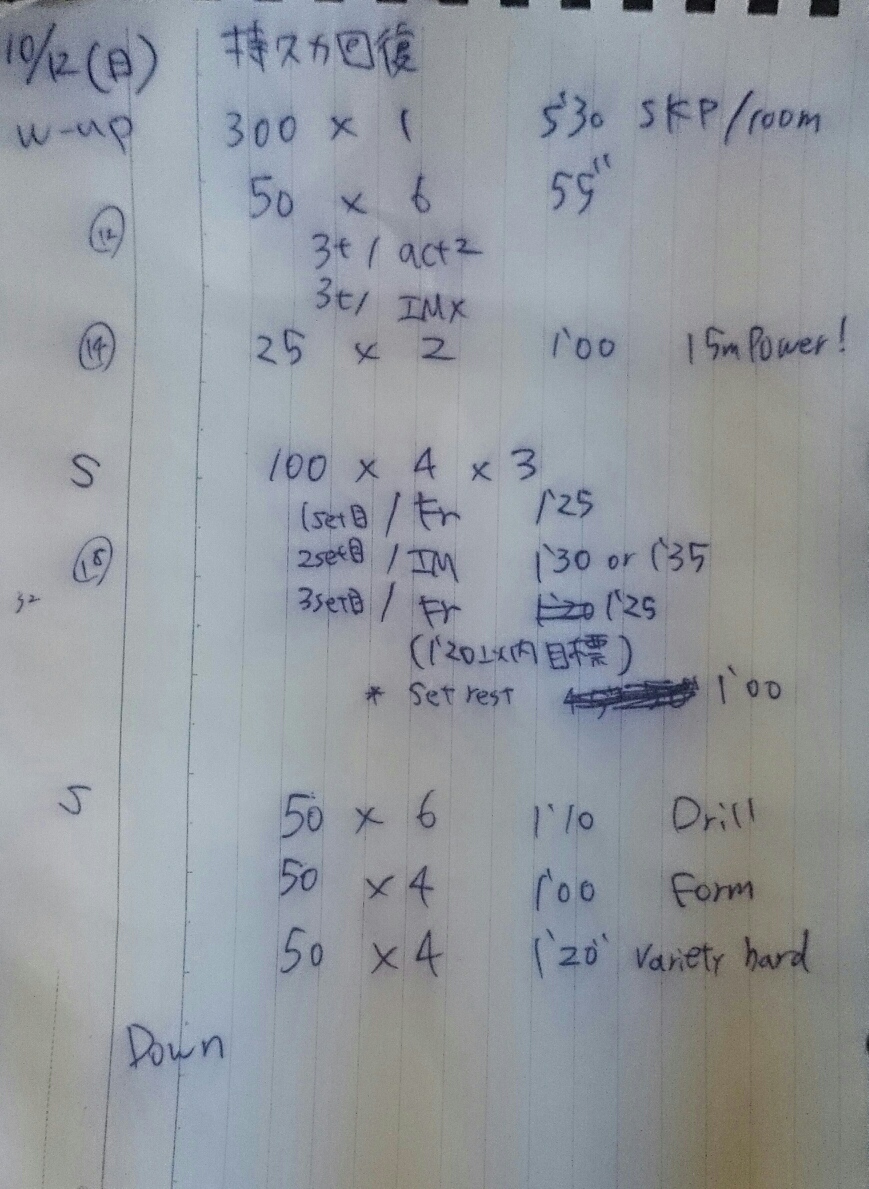 10/12(日) 持スカ回復
W-up 300 × 1 5'30 SKP/room
50 × 6 55"
⑫
3t/ act2
3t/ IMX
⑭ 25 × 2 1'00 15m Power!
S 100 × 4 × 3
1set目 / Fr 1'25
⑱ 2set目 / IM 1'30 or 1'35
32 3set目 / Fr 1'20 1'25
(1'20以内目標)
* Set rest 1'00
S 50 × 6 1'10 Drill
50 × 4 1'00 Form
50 × 4 1'20" Variety hard
Down